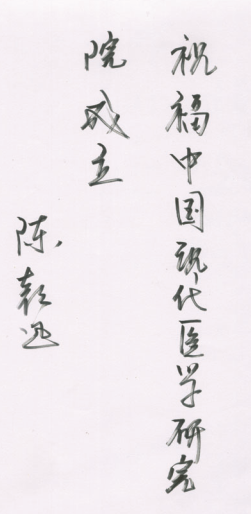 祝福中国现代医学研究
院成立
陈彰迅